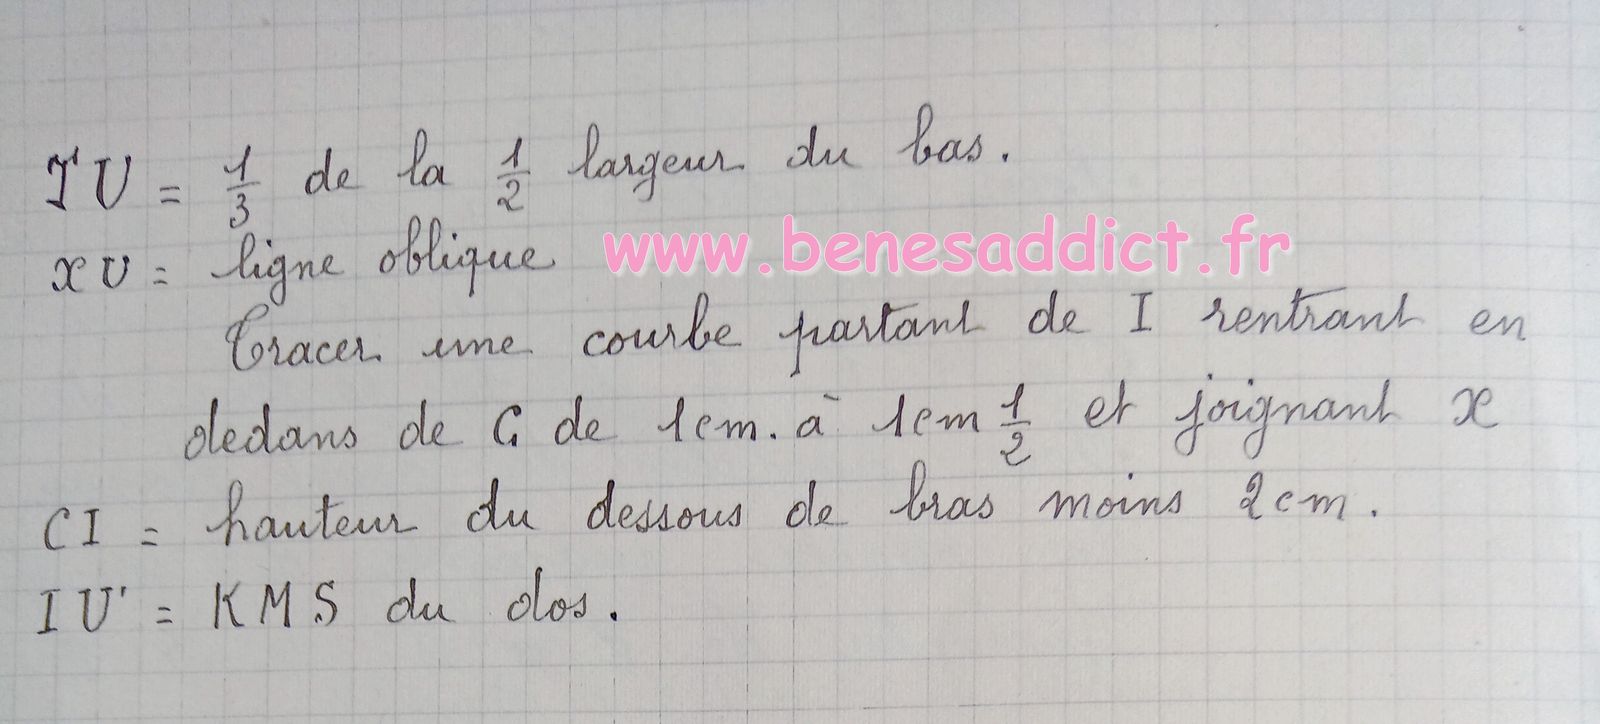 TU = 1/3 de la 1/2 largeur du bas.
XU = ligne oblique
www.benesaddict.fr
Tracer une courbe partant de I rentrant en
dedans de C de 1cm. à 1cm 1/2 et joignant X
CI = hauteur du dessous de bras moins 2cm.
IU' = KMS du dos.